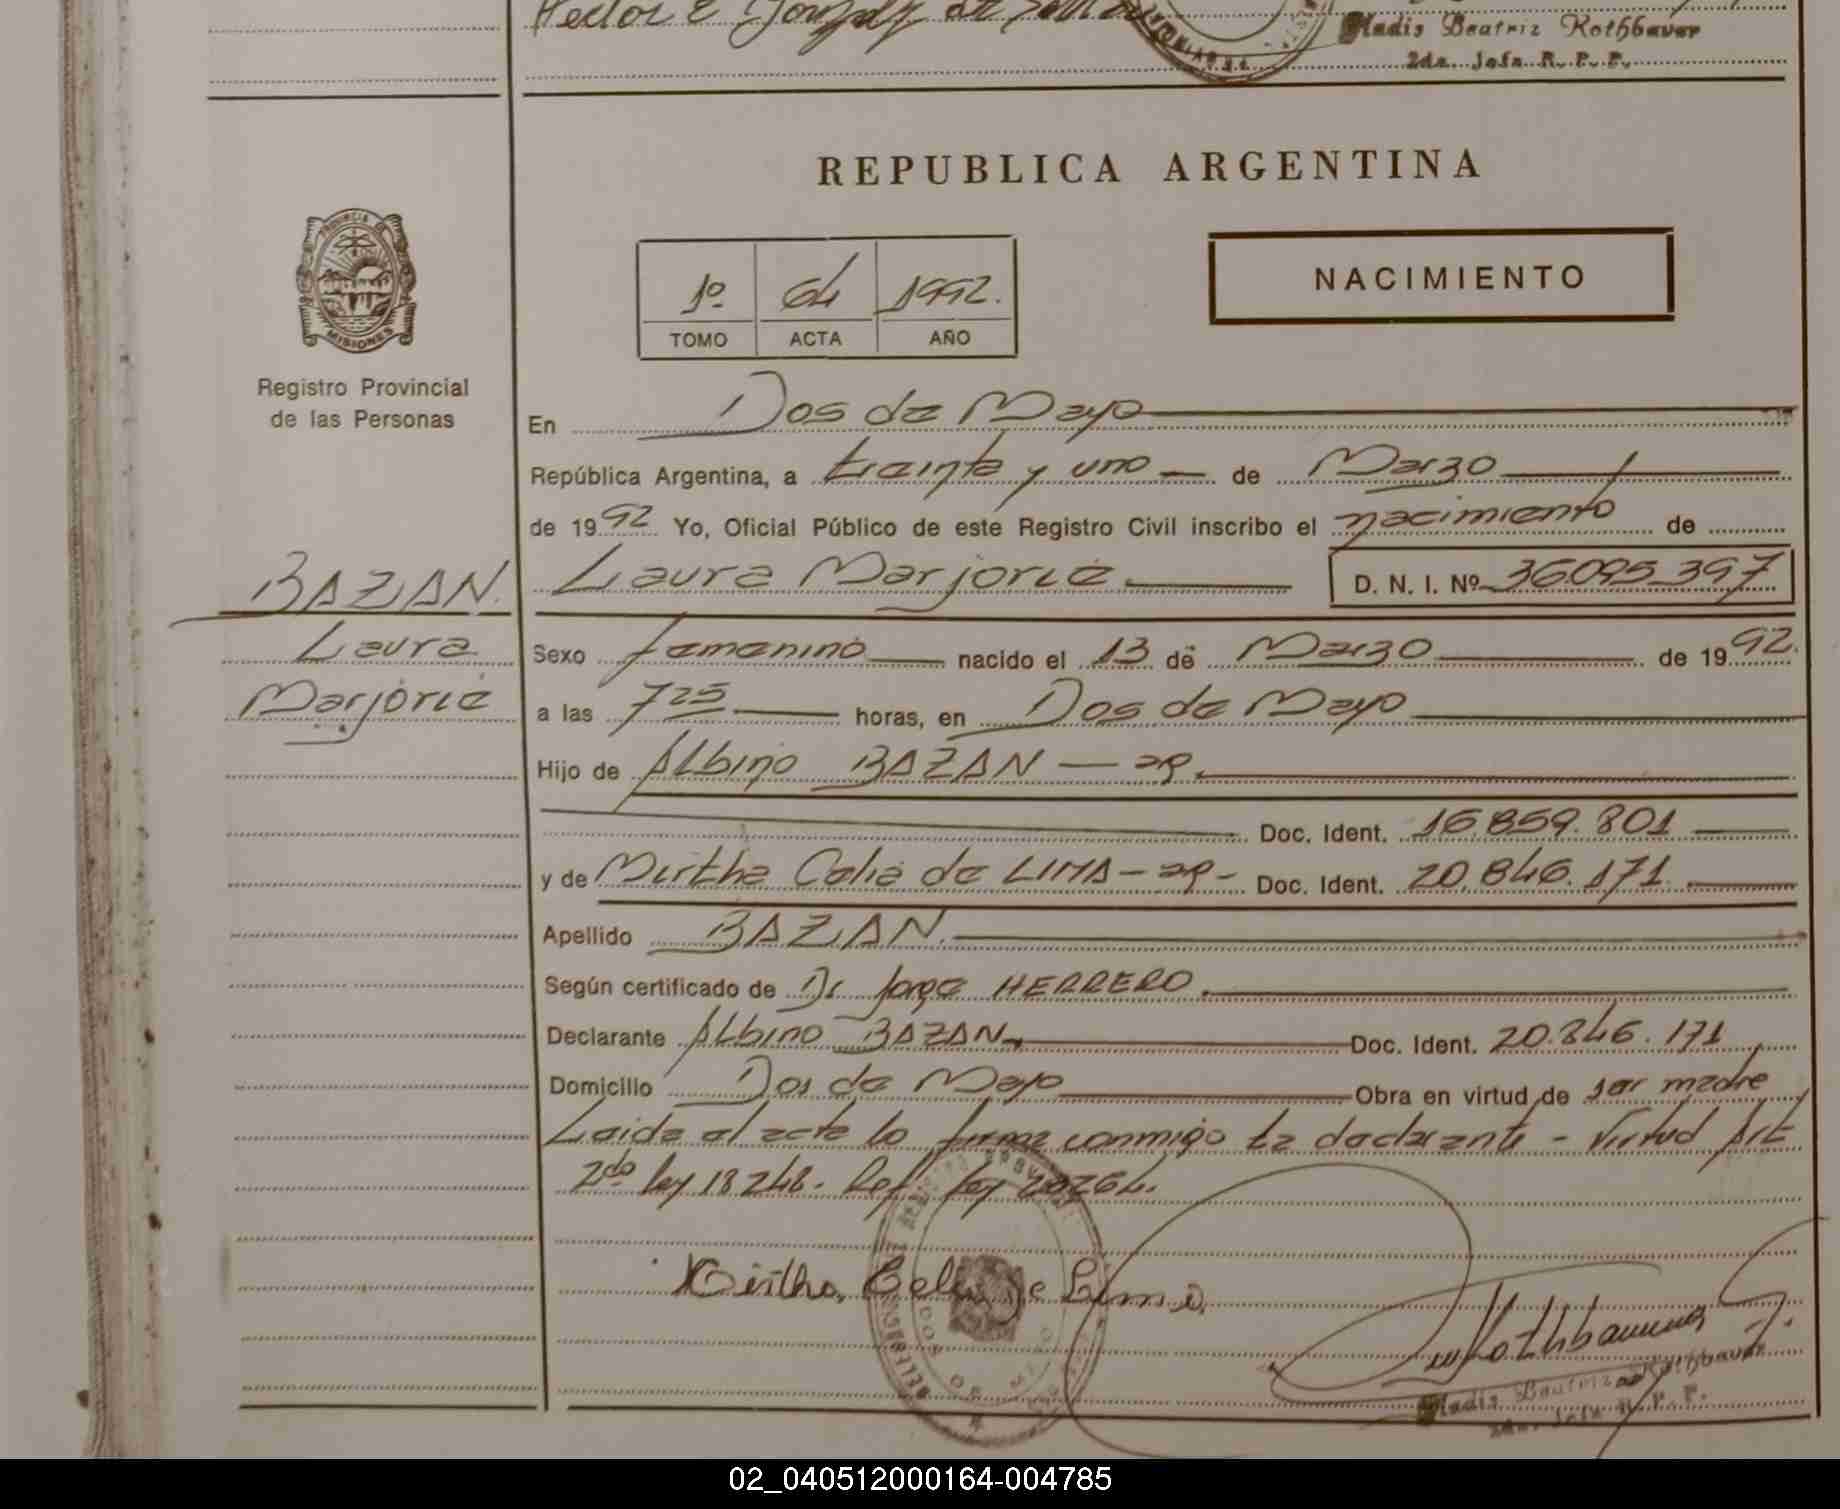 Hector E Gonzalez de
Gladis Beatriz Rothbauer
2da. Jefa R. P. P.
REPUBLICA ARGENTINA
PROVINCIA DE
MISIONES
Registro Provincial
de las Personas
1º 64 1992.
TOMO ACTA AÑO
NACIMIENTO
En Dos de Mayo
República Argentina, a treinta y uno de Marzo
de 1992 Yo, Oficial Público de este Registro Civil inscribo el nacimiento de
BAZAN.
Laura
Marjorie
Laura Marjorie D. N. I. Nº 36.095.397
Sexo femenino nacido el 13 de Marzo de 1992.
a las 7 25 horas, en Dos de Mayo
Hijo de Albino BAZAN — ar.
Doc. Ident. 16.859.801
y de Mirtha Celia de LIMA - ar - Doc. Ident. 20.846.171
Apellido BAZAN.
Según certificado de Dr Jorge HERRERO.
Declarante Albino BAZAN Doc. Ident. 20.846.171
Domicilio Dos de Mayo Obra en virtud de ser madre
Leida el acta lo firma conmigo la declarante - Virtud Art
2do ley 18248. Ref. ley 20264.
Mirtha Celia de Lima
DOS DE MAYO
Rothbauer
Gladis Beatriz Rothbauer
2da. Jefa R. P. P.
02_040512000164-004785